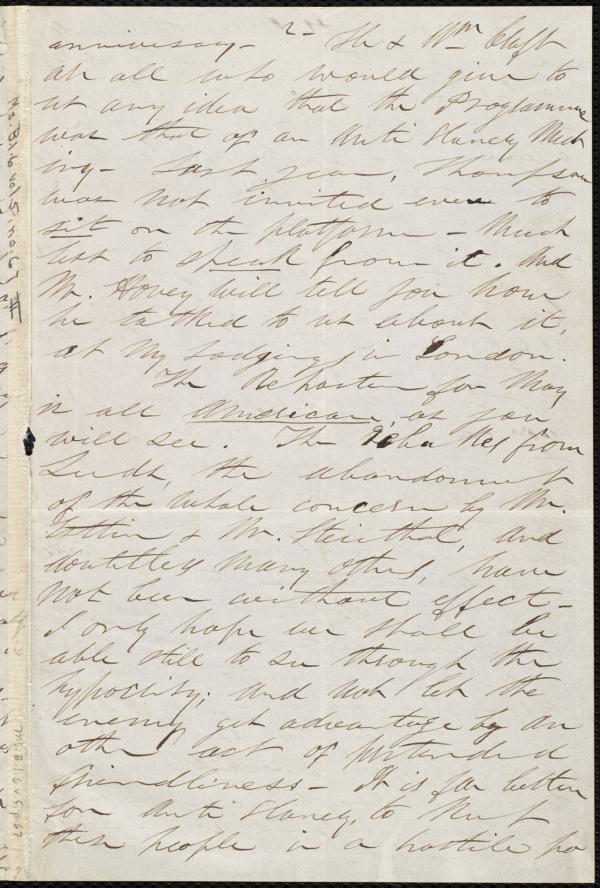 2-
anniversary - He & Wm Craft
are all who would give to
us any idea that the Programme
was that of an Anti Slavery Meet
ing - Last year, Thompson
was not invited even to
sit on the platform - Much
less to speak from it. And
Mr. Hovey will tell you how
he talked to us about it,
at my Lodgings in London.
The Reporter for May
is all American, as you
will see. The rebukes from
Leeds, the abandonment
of the whole concern by Mr.
Estlin & Mr. Steinthal, and
doubtless many others, have
not been without effect -
I only hope we shall be
able still to see through the
hypocrisy; and not let the
enemy get advantage by an
other act of pretended
friendliness - It is far better
for Anti Slavery, to meet
these people in a hostile po
Ms.B.1.6 vol.5, no.67
Ms.B.1.6 v.5 p.67